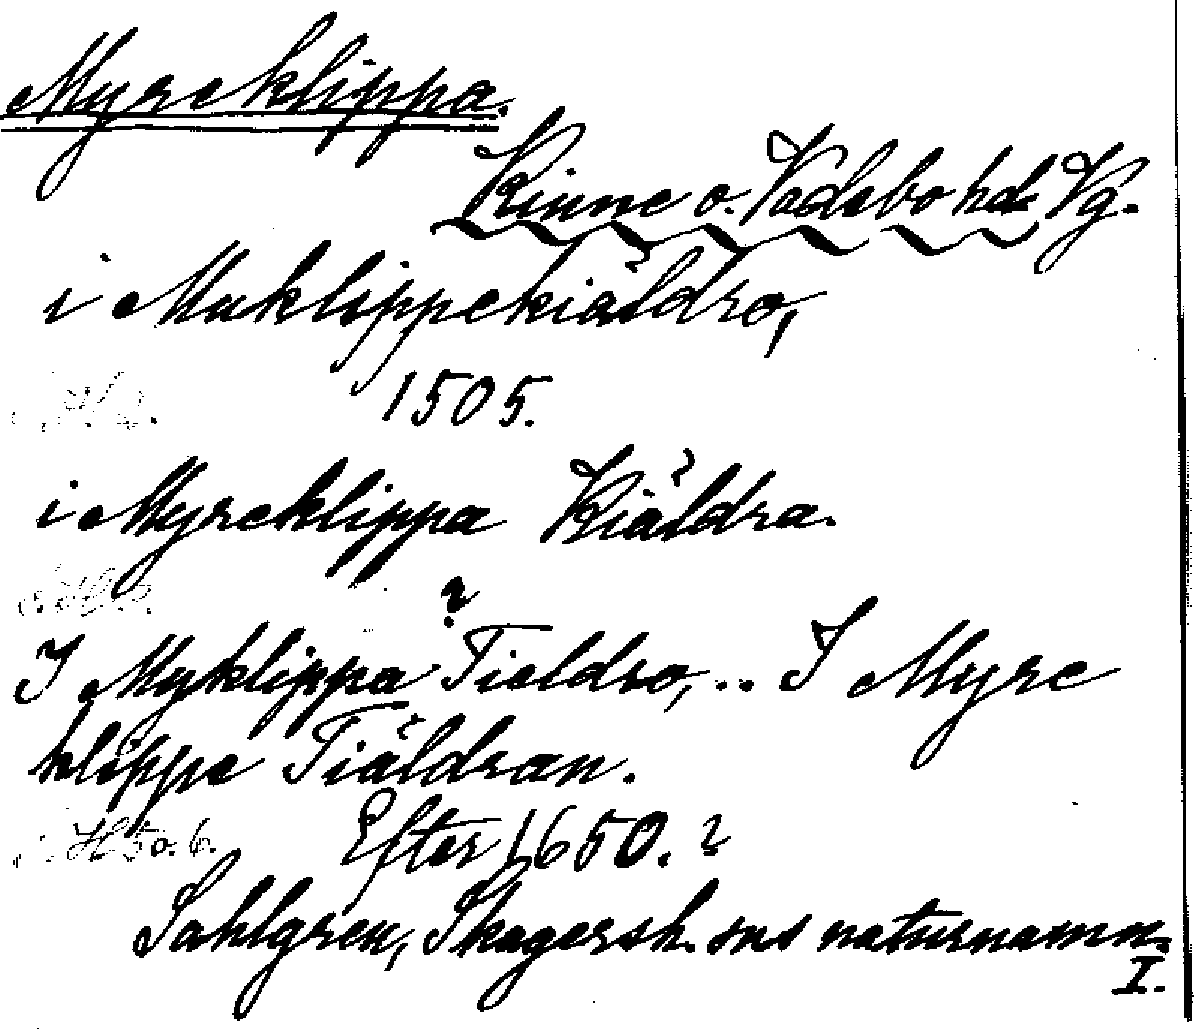 Myreklippa.
Kinne o. Vadsbo hd Vg.
i Muklippekiäldro,
1505.
i Myreklippa Kiäldra.
?
I Myklippa Tieldro, .. I Myre
klippe Tiäldran.
H 5 o. 6. Efter 1650. ?
Sahlgren, Skagersh. sns naturnamn.
I.